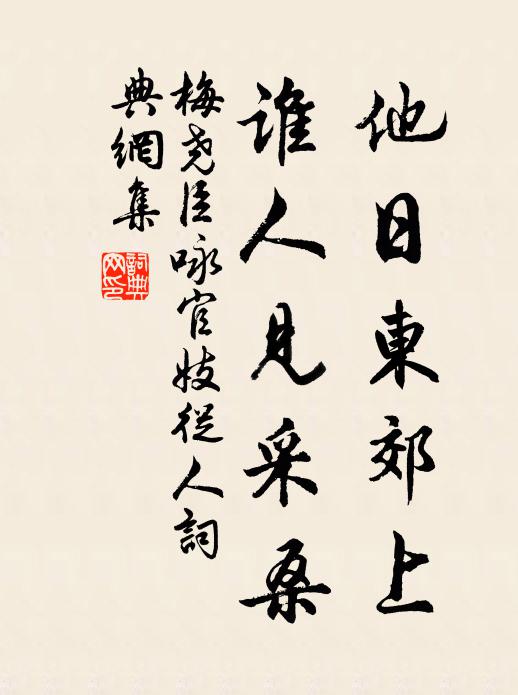 他日東郊上
谁人見采桑
梅尧臣咏官妓從人詞
典網集
詞典网印